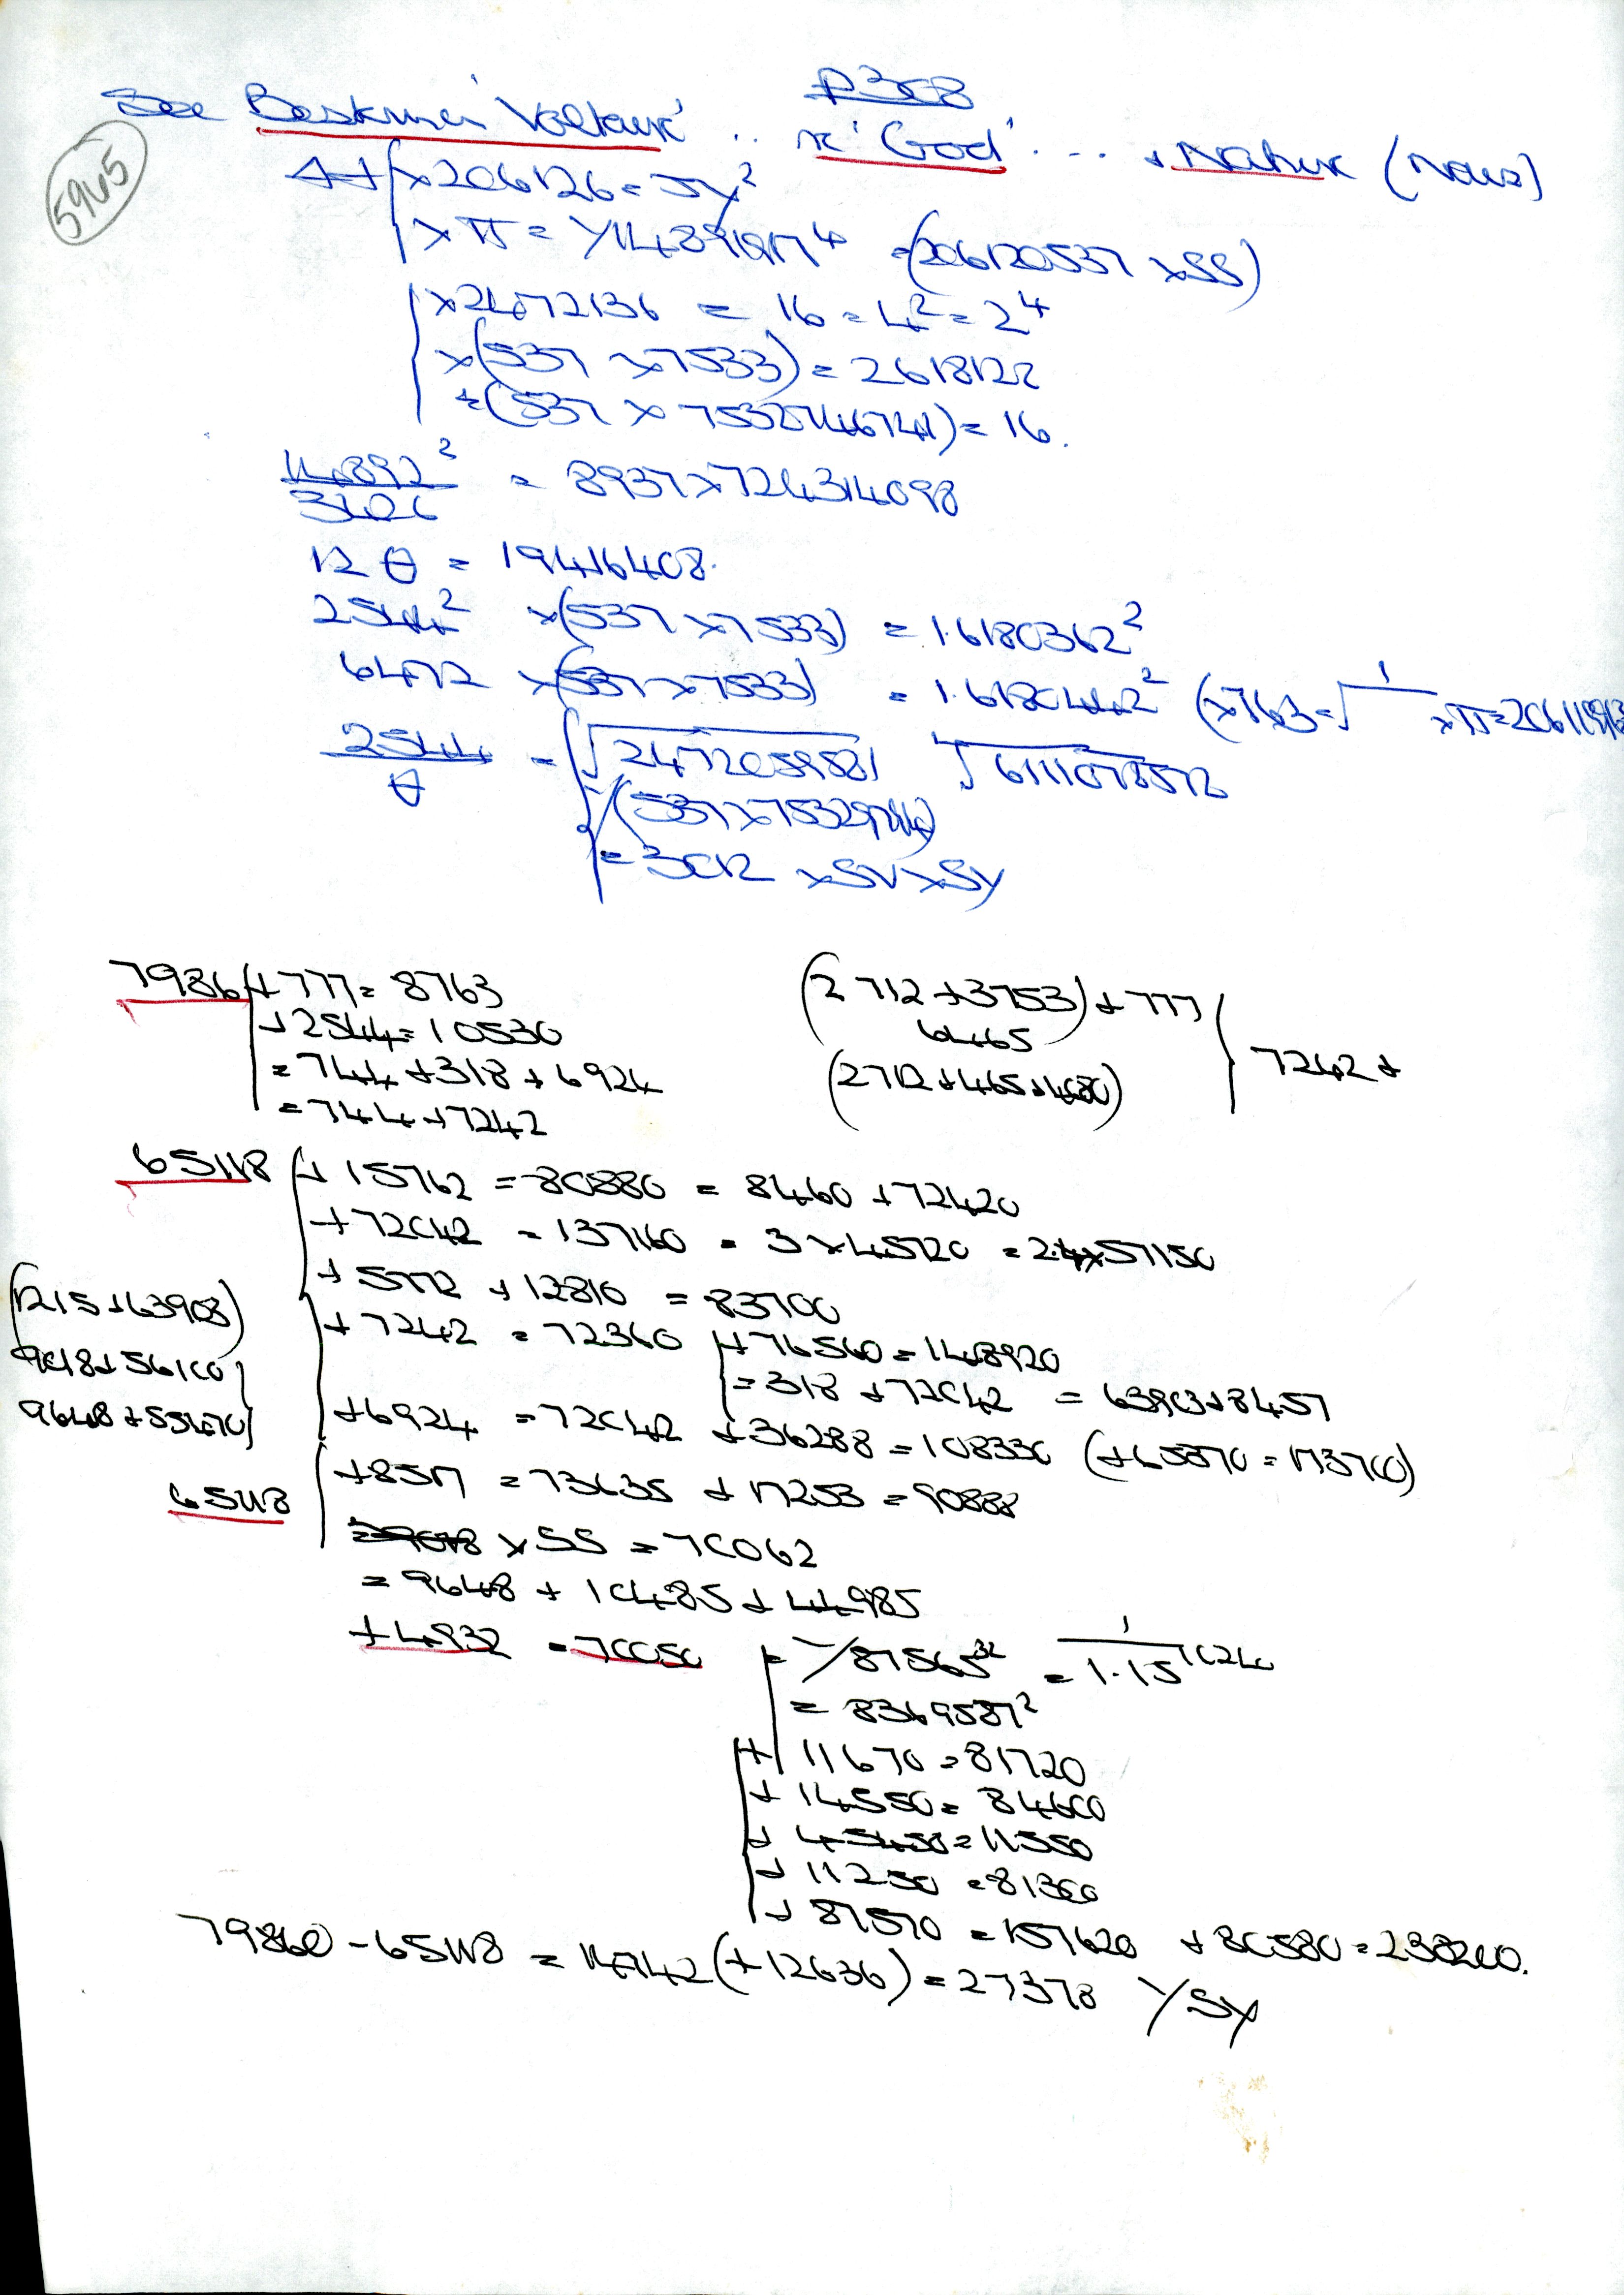 P 308
See Besterman 'Voltaire' .. re 'God' ... + Nature (News)
5965
×206126 = 5y²
×π = 
×2472136 = 16 = 4² = 2⁴
×(537 ×7533) = 2618122
= 16.
14892² / 3406 = 8937×724314098
12 θ = 19416408.
2544² ×(537 ×7533) = 1.6180362²
6472 ×(537×7533) = 1.6180442² (×763 = √1
2544 / θ = √2472059581
= 3012 ×SV×Sy
7986 +777 = 8763
+2544 = 10530
= 744 +318 + 6924
= 744 +7242
(2712 +3753) + 777
6465
(2712+465+4080)
7242 +
65118 + 15762 = 80880 = 8460 +72420
+72042 = 137160 = 3×45720 = 2.4×57150
+5772 +12810 = 83700
+7242 = 72360 +76560 = 148920
= 318 +72042 = 63903+8457
+6924 = 72042 +36288 = 108330 (+65370 = 173700)
(1215 +63903)
9018+56100
9648+55470
65118 +8517 = 73635 +17253 = 90888
×SS = 70062
= 9648 + 10485 + 44985
+4932 = 70050 = /87565³² = 1 / 1.15¹⁰²⁴⁰
= 8369587²
+ 11670 = 81720
+ 14550 = 84600
+ 45450 = 11550
+ 11250 = 81300
+ 87570 = 157620 + 80580 = 238200.
79860 - 65118 = 14742 (+12636) = 27378 /Sy